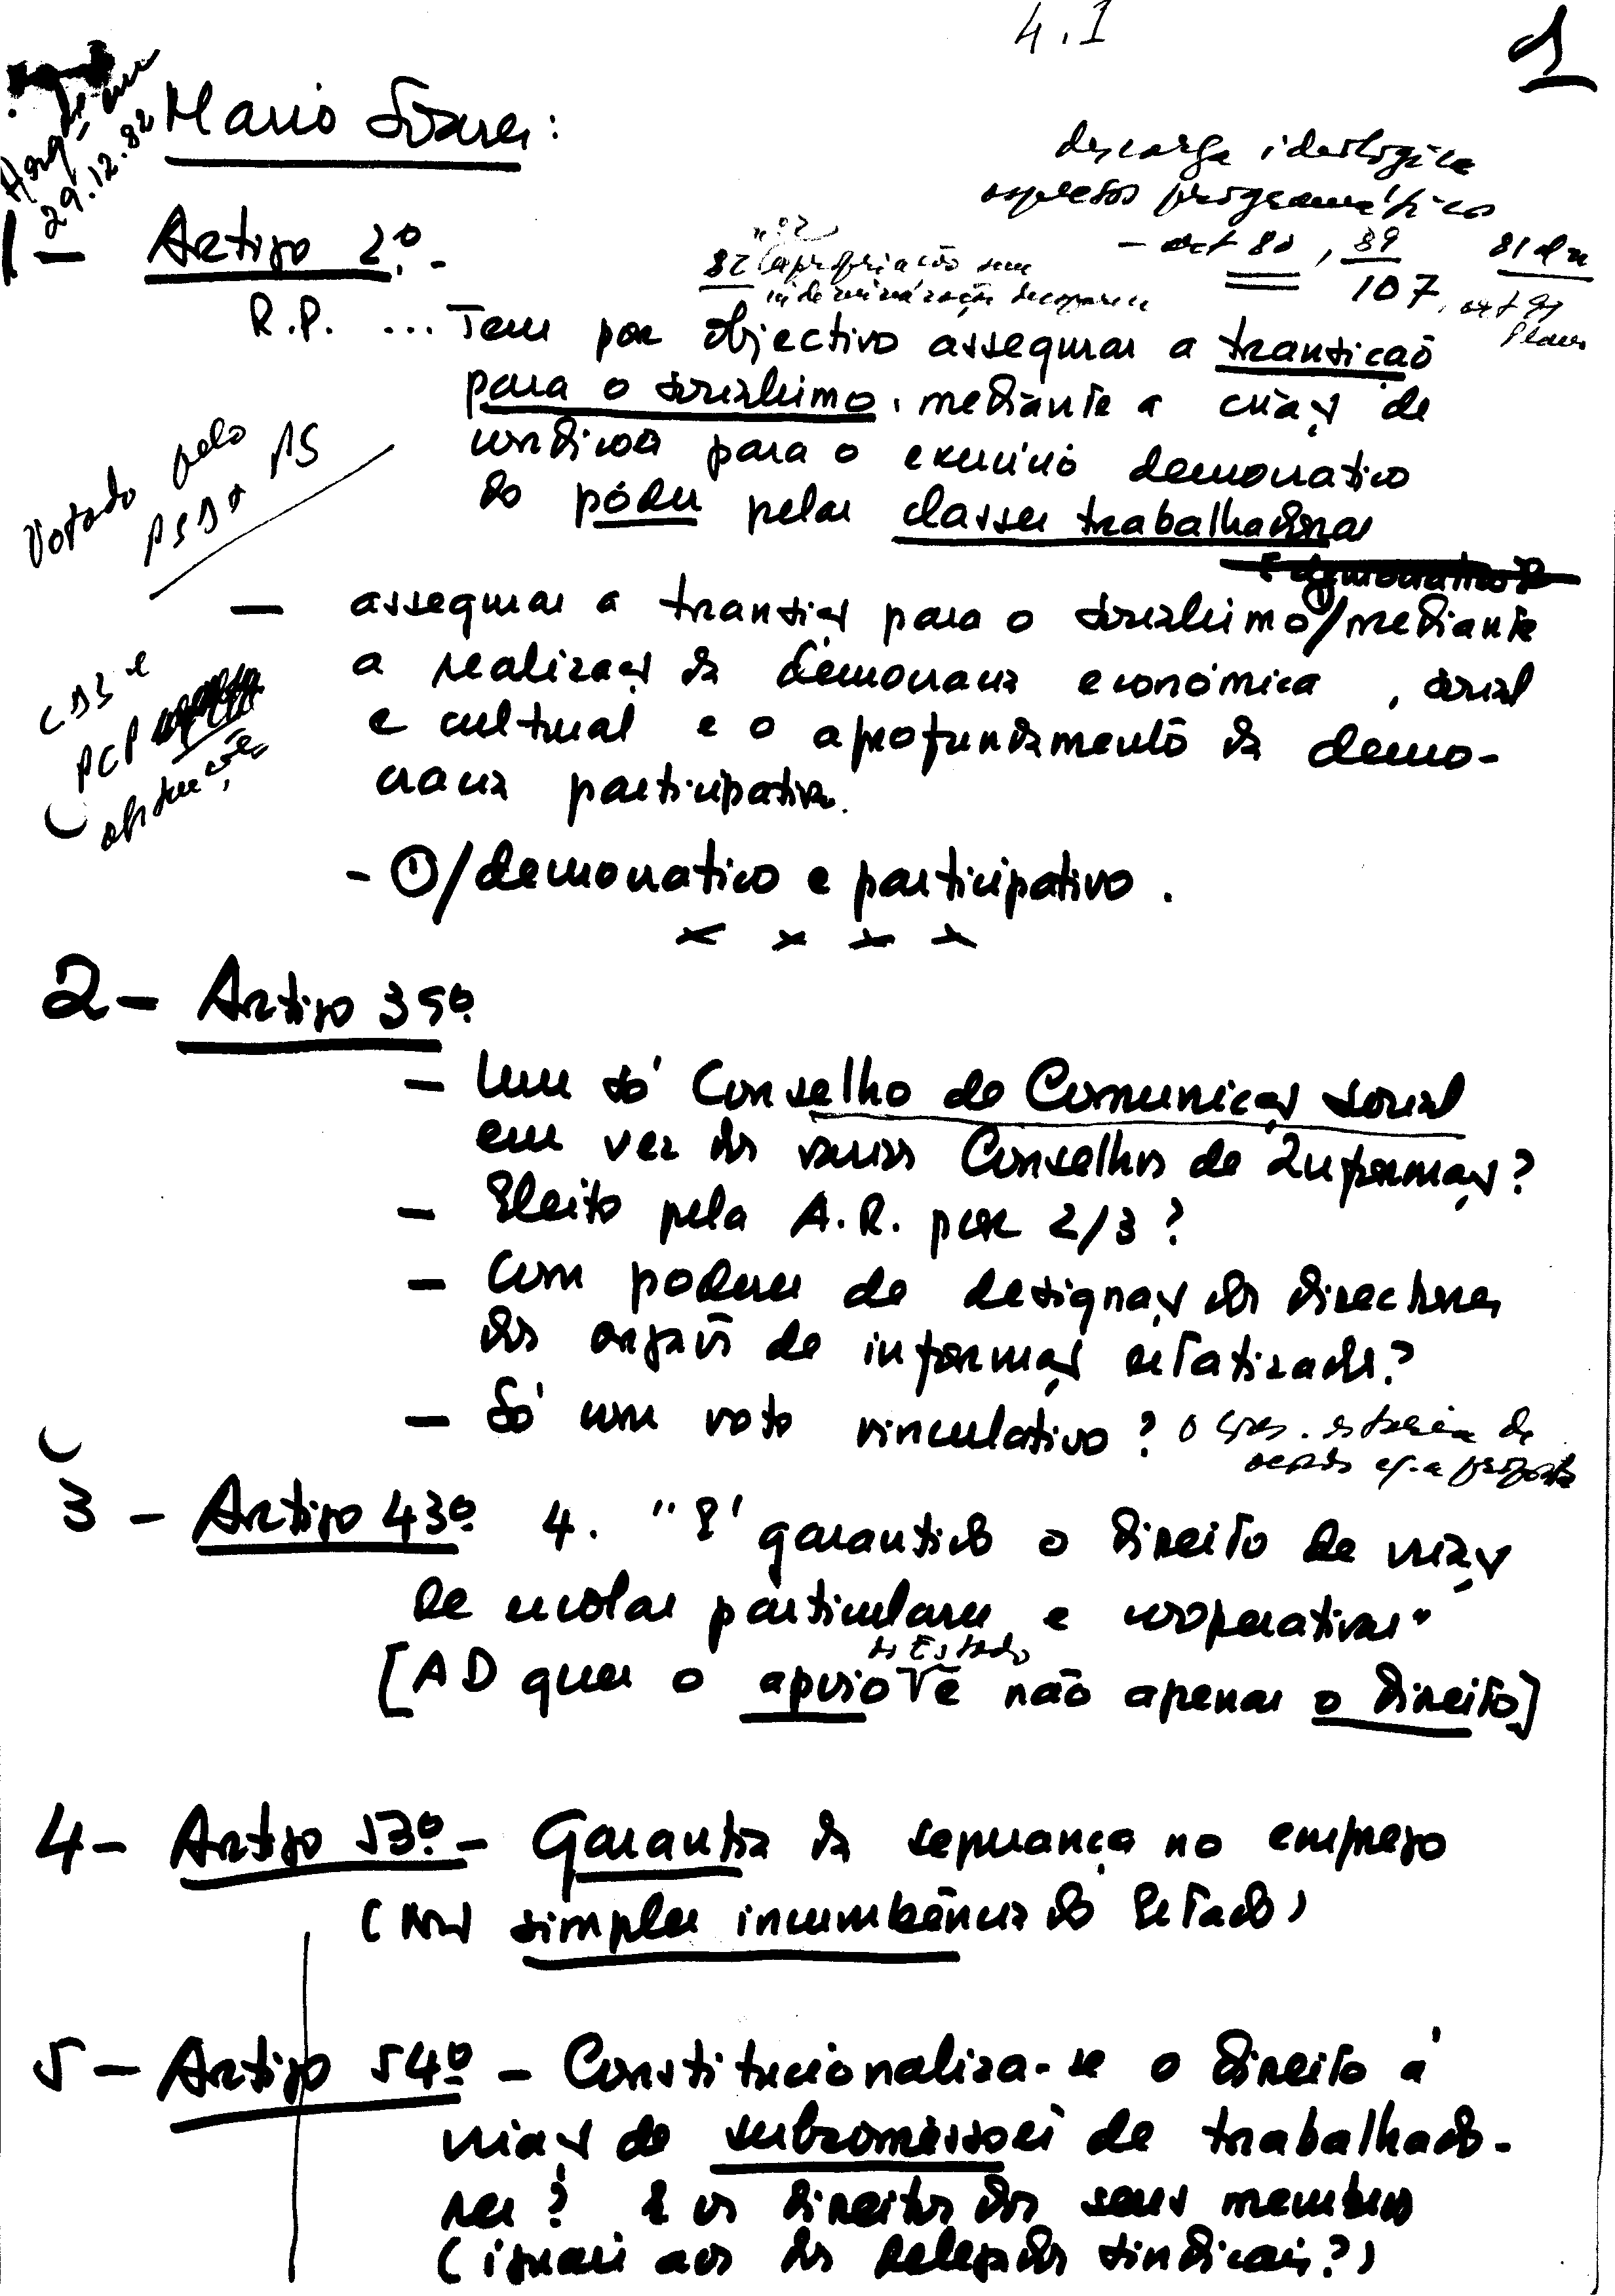 4.1
1
29.12.82
Mario Soares:
descarga ideologica
aspectos programáticos
- art 80, 89 81 d n
107, art 91
Plano
nº 2
82 apropriação sem
indemnização
1 - Artigo 2º. -
R.P. ... Tem por objectivo assegurar a transição
para o socialismo, mediante a criação de
condições para o exercício democratico
do póder pelas classes trabalhadoras
Votado pelo
PSD + PS
- assegurar a transição para o socialismo/mediante
a realização da democracia económica, social
e cultural e o aprofundamento da demo-
cracia participativa.
CDS e
PCP
abstenção
- O/democratico e participativo.
x x x x
2 - Artigo 39º
- Um só Conselho de Comunicação social
em vez dos varios Conselhos de Informação?
- Eleito pela A.R. por 2/3?
- Com poderes de designação dos directores
dos orgãos de informação estatizados?
- Só um voto vinculativo? o Gov. estaria de
acordo c/ a proposta
3 - Artigo 43º 4. "É garantido o direito de criação
de escolas particulares e cooperativas"
[AD quer o apoio do Estado e não apenas o direito]
4 - Artigo 53º - Garantia da segurança no emprego
(não simples incumbência do Estado)
5 - Artigo 54º - Constitucionaliza-se o direito á
criação de subcomissões de trabalhado-
res? E os direitos dos seus membros
(iguais aos dos delegados sindicais?)